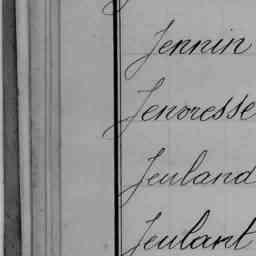 Jennin
Jenoresse
Jeuland
Jeulant